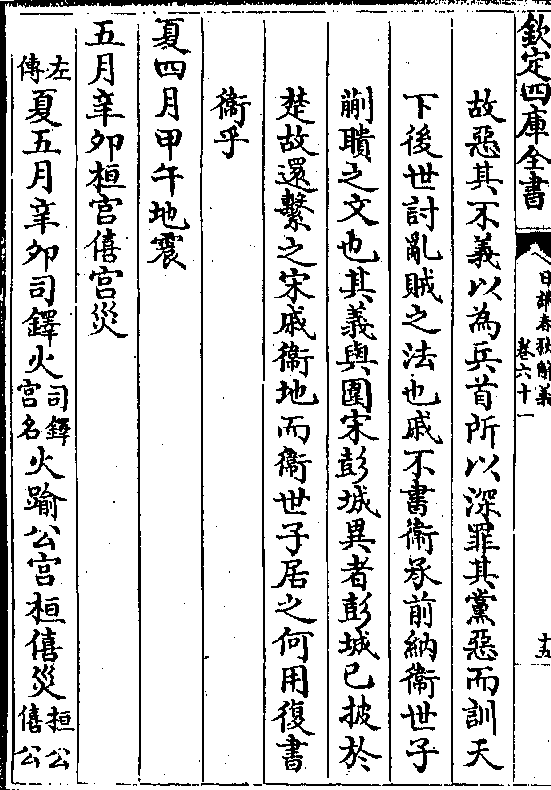 欽定四庫全書
日講春秋解義
卷六十一
十五
故惡其不義以為兵首所以深罪其黨惡而訓天
下後世討亂賊之法也戚不書衛承前納衛世子
蒯聵之文也其義與圍宋彭城異者彭城已披於
楚故還繫之宋戚衛地而衛世子居之何用復書
衛乎
夏四月甲午地震
五月辛卯桓宫僖宫災
左傳夏五月辛夘司鐸火司鐸宫名火踰公宫桓僖災桓公僖公